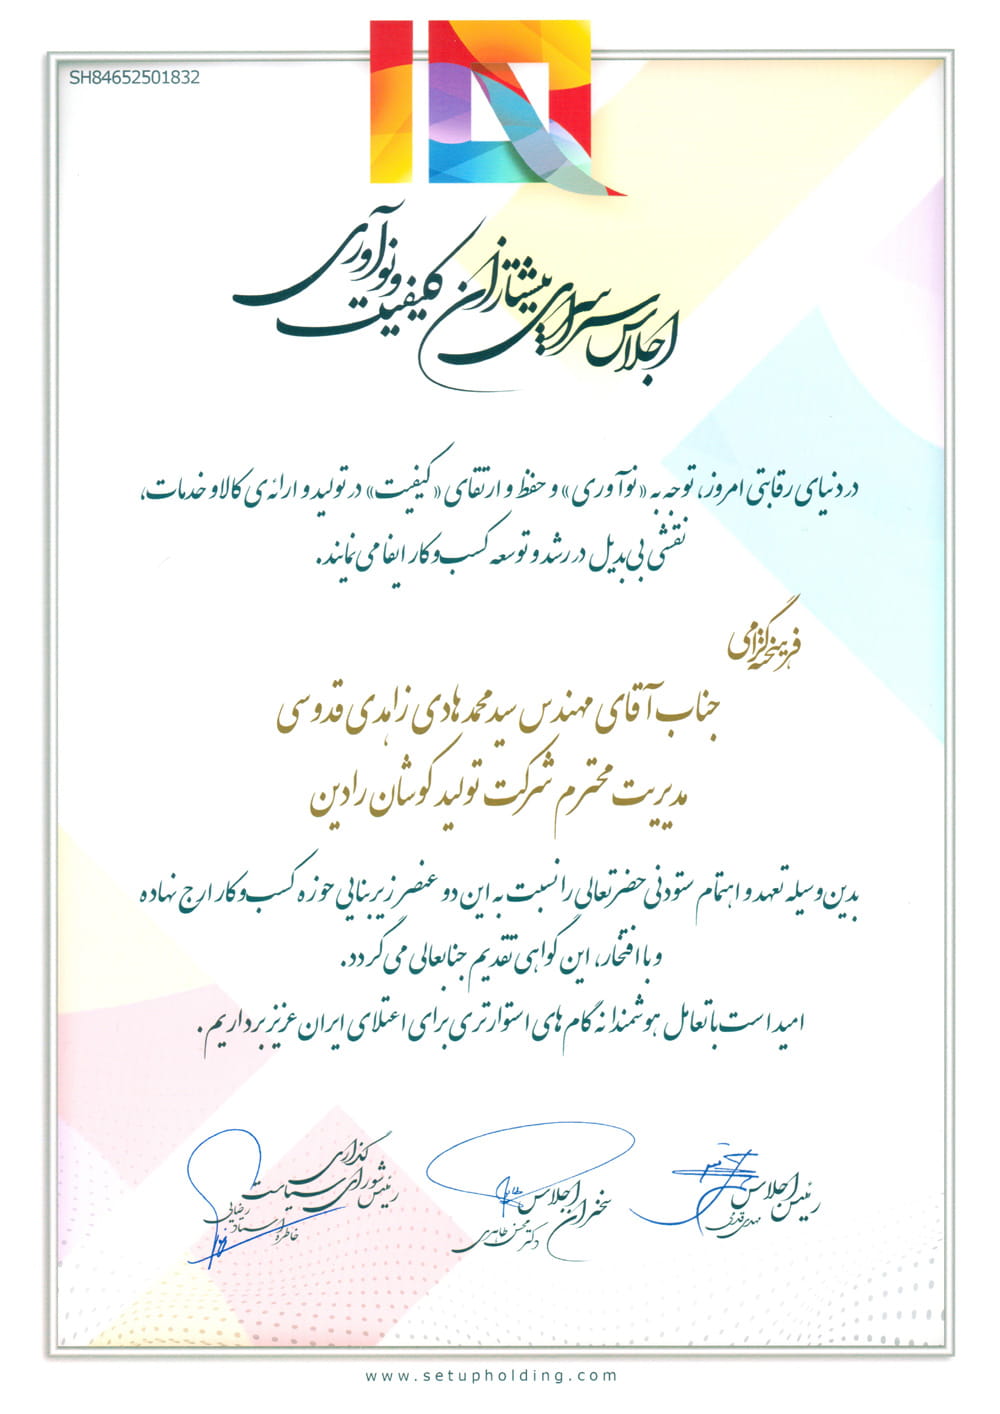 SH84652501832
IQ
اجلاس سراسری پیشتازان کیفیت و نوآوری
در دنیای رقابتی امروز، توجه به «نوآوری» و حفظ و ارتقای «کیفیت» در تولید و ارائه‌ی کالا و خدمات،
نقشی بی‌بدیل در رشد و توسعه کسب و کار ایفا می‌نمایند.
فرهیخته گرامی
جناب آقای مهندس سید محمد هادی زاهدی قدوسی
مدیریت محترم شرکت تولید کوشان رادین
بدین وسیله تعهد و اهتمام ستودنی حضرتعالی را نسبت به این دو عنصر زیربنایی حوزه کسب و کار ارج نهاده
و با افتخار، این گواهی تقدیم جنابعالی می‌گردد.
امید است با تعامل هوشمندانه گام‌های استوارتری برای اعتلای ایران عزیز برداریم.
رئیس اجلاس
مهدی قدمی
سخنران اجلاس
دکتر محسن طاهری
رئیس شورای سیاست گذاری
خاطره استاد رضایی
www.setupholding.com